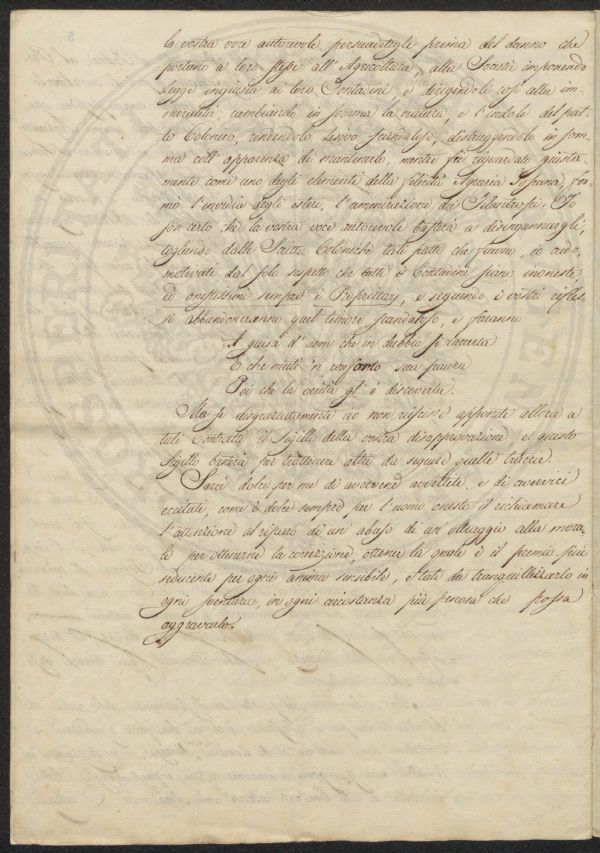 la vostra voce autorevole persuadetegli prima del danno che
portano a loro stessi all'Agricoltura, alla Società imponendo
Leggi ingiuste ai loro Contadini, e dirigendole così alla im-
moralità, cambiando in somma la natura, e l'indole del pat-
to Colonico, rendendolo lesivo scandaloso, distruggendolo in som-
ma coll'apparenza di mantenerlo, mentre fù riguardato giusta-
mente come uno degli elementi della felicità Agraria Toscana, for-
mò l'invidia degli esteri, l'ammirazione dei Filantropi. Io
son certo che la vostra voce autorevole basterà a disingannargli,
togliendo dalle Scritte Coloniche tali patti che furono, io credo,
motivati dal solo sospetto che tutti i Contadini siano inonesti
ed onestissimi sempre i Proprietarj, e seguendo i vostri rifles-
si abbandoneranno quel timore scandaloso, e faranno
A guisa d'uom che in dubbio si raccerta
E che muti 'n conforto sua paura
Poi che la verità gl'è discoverta.
Ma se disgraziatamente ciò non riuscisse apponete allora a
tali Contratti il Sigillo della vostra disapprovazione, e questo
Sigillo basterà per trattenere altri da seguire quelle traccie.
Sarà dolce per me di avervene avvertiti, e di avervici
eccitati, come è dolce sempre per l'uomo onesto il richiamare
l'attenzione al riparo di un abuso di un oltraggio alla mora-
le per ottenerne la correzione, ottener la quale è il premio più
seducente per ogni anima sensibile, e tale da tranquillizzarlo in
ogni sventura, in ogni circostanza più penosa che possa
aggravarlo.